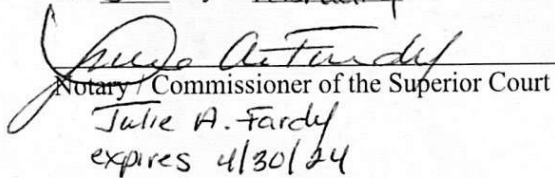 Julie A. Fardy
Notary / Commissioner of the Superior Court
Julie A. Fardy
expires 4/30/24